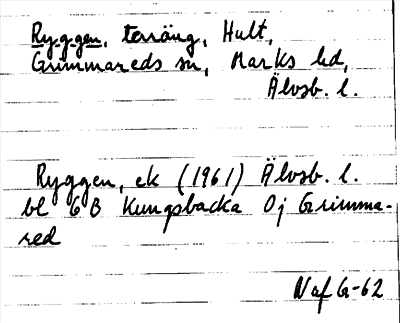 Ryggen, terräng, Hult,
Grimmareds sn, Marks hd,
Älvsb. l.
Ryggen, ek (1961) Älvsb. l.
bl 6 B Kungsbacka 0j Grimma-
red
Naf G-62